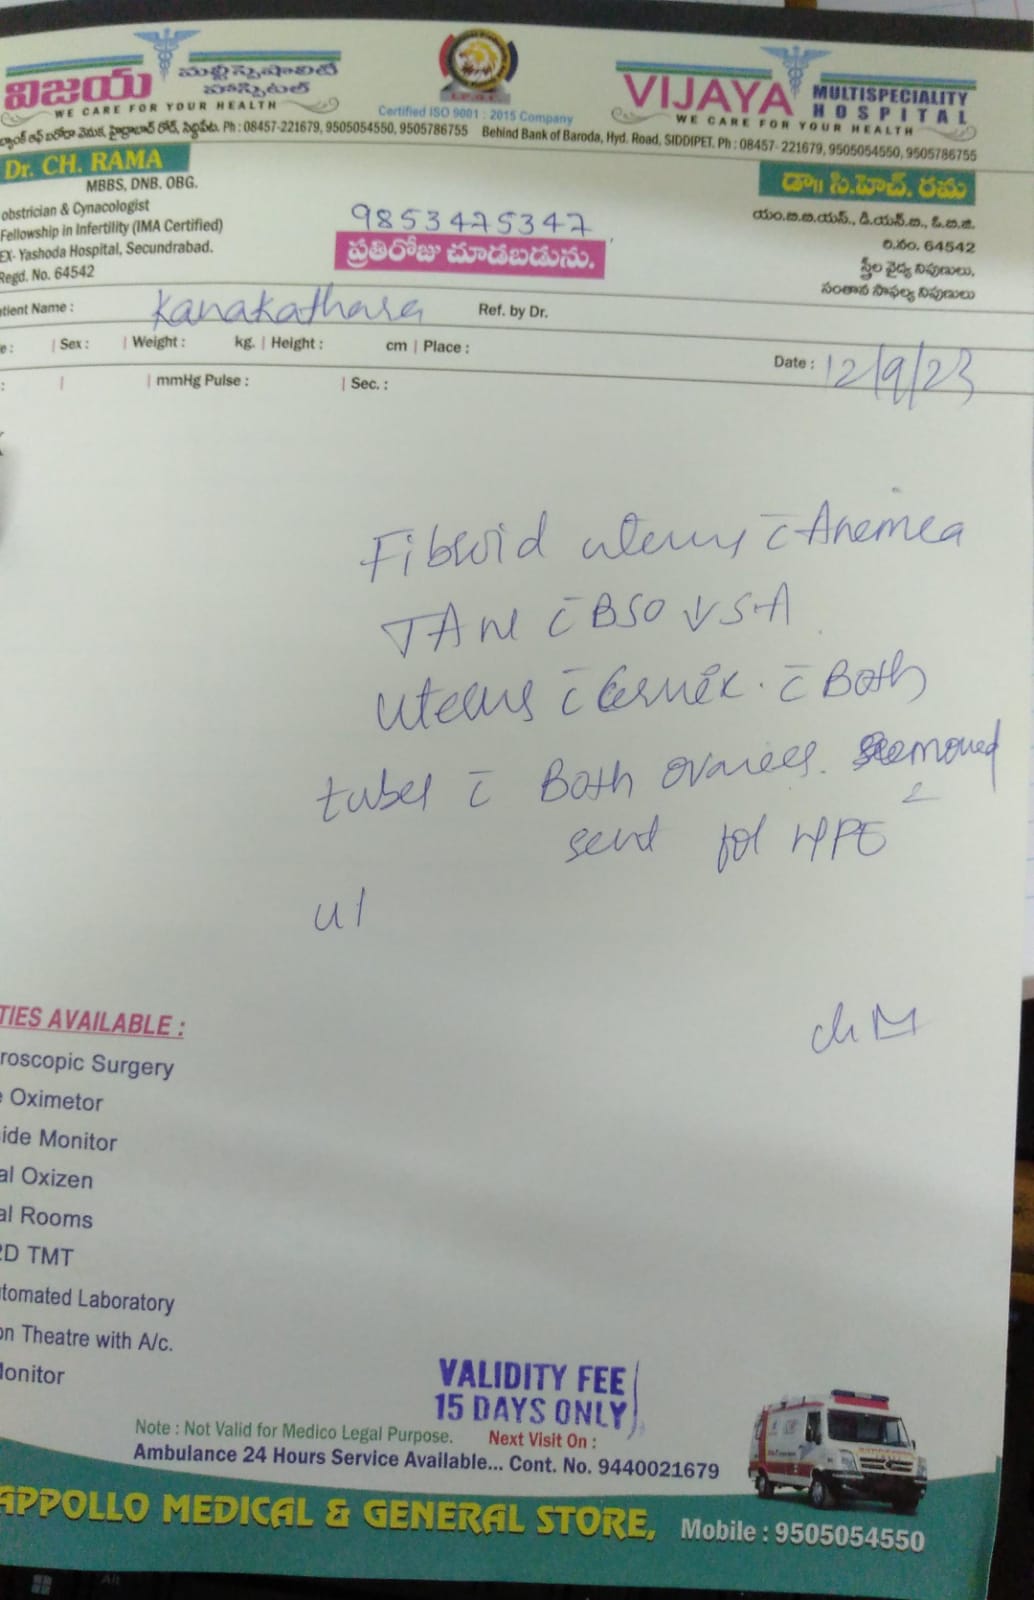 విజయ మల్టీస్పెషాలిటీ హాస్పిటల్
WE CARE FOR YOUR HEALTH
బ్యాంక్ ఆఫ్ బరోడా వెనుక, హైద్రాబాద్ రోడ్, సిద్దిపేట. Ph : 08457-221679, 9505054550, 9505786755
Certified ISO 9001 : 2015 Company
VIJAYA MULTISPECIALITY HOSPITAL
WE CARE FOR YOUR HEALTH
Behind Bank of Baroda, Hyd. Road, SIDDIPET. Ph : 08457- 221679, 9505054550, 9505786755
Dr. CH. RAMA
MBBS, DNB. OBG.
obstrician & Cynacologist
Fellowship in Infertility (IMA Certified)
EX- Yashoda Hospital, Secundrabad.
Regd. No. 64542
9853475347
ప్రతిరోజు చూడబడును.
డా॥ సి.హెచ్. రమ
యం.బి.బి.యస్., డి.యన్.బి., ఓ.బి.జి.
రి.నం. 64542
స్త్రీల వైద్య నిపుణులు,
సంతాన సాఫల్య నిపుణులు
tient Name : Kanakathara Ref. by Dr.
e : | Sex : | Weight : kg. | Height : cm | Place :
Date : 12/9/23
: | | mmHg Pulse : | Sec. :
Fibroid uterus c̄ Anemia
c̄ BSO
uterus c̄ Cervix. c̄ Both
tubes c̄ Both ovaries. Removed
send for HPE
TIES AVAILABLE :
roscopic Surgery
e Oximetor
ide Monitor
al Oxizen
al Rooms
2D TMT
tomated Laboratory
on Theatre with A/c.
Monitor
VALIDITY FEE
15 DAYS ONLY
Note : Not Valid for Medico Legal Purpose. Next Visit On :
Ambulance 24 Hours Service Available... Cont. No. 9440021679
APPOLLO MEDICAL & GENERAL STORE, Mobile : 9505054550